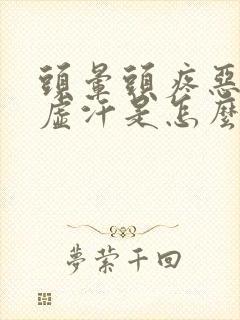 頭暈頭疼惡
虛汗是怎麼
夢縈千回